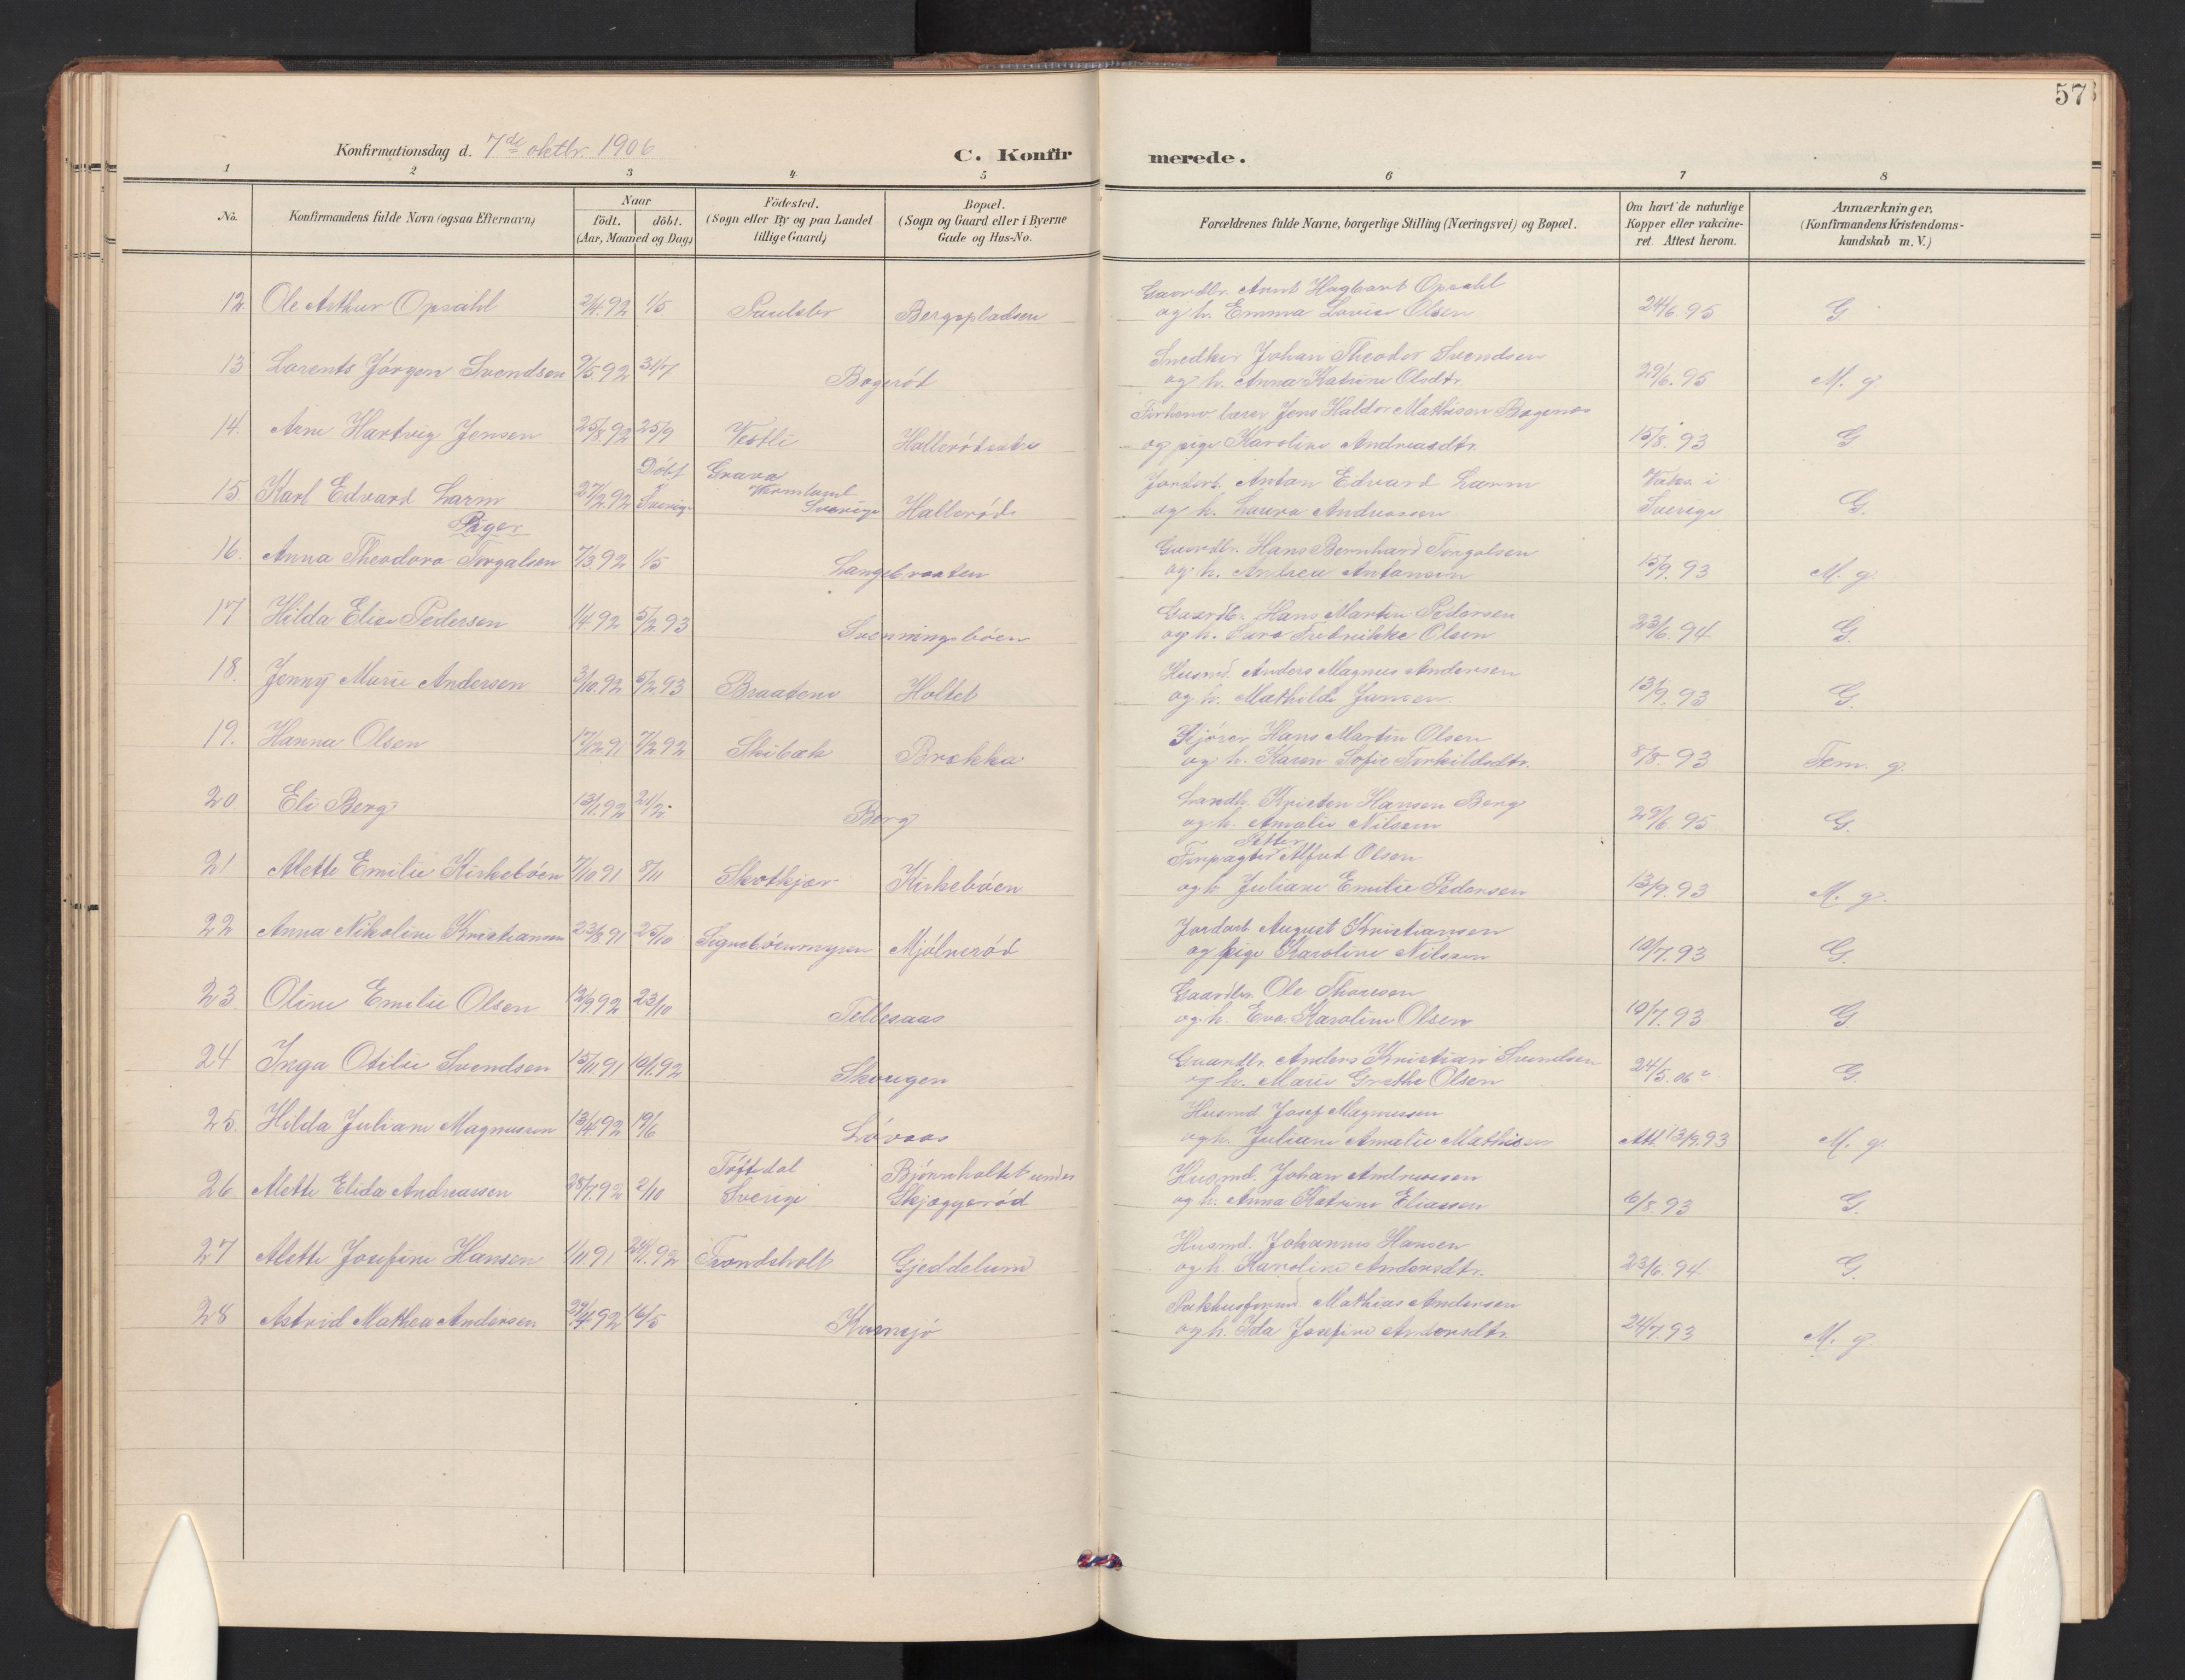 57
Konfirmationsdag d. 7de oktbr. 1906
C. Konfirmerede.
1 2 3 4 5 6 7 8
No.
Konfirmandens fulde Navn (ogsaa Efternavn)
Naar
født. døbt.
(Aar, Maaned og Dag)
Fødested.
(Sogn eller By og paa Landet
tillige Gaard)
Bopæl.
(Sogn og Gaard eller i Byerne
Gade og Hus-No.
Forældrenes fulde Navne, borgerlige Stilling (Næringsvei) og Bopæl.
Om havt de naturlige
Kopper eller vakcine-
ret. Attest herom.
Anmærkninger.
(Konfirmandens Kristendoms-
kundskab m. V.)
12. Ole Arthur Opsahl 2/4.92 1/5 Bergspladsen
Gaardbr. Arnt Hagbart Opsahl
og h. Emma Lovise Olsen 24/6 95 G
13 Lorents Jörgen Svendsen 9/5 92 31/7 Bogeröd
Snedker Johan Theodor Svendsen
og h. Anna Katrine Olsdtr. 29/6. 95 M. g.
14. Arne Hartvig Jensen 25/8 92 25/9 Vestli
Jens Haldor Mathisen
og pige Karoline Andreasdtr. 15/8. 93 G
15. Karl Edvard Larm 27/2.92 Döbt Sverig Grava Vermland Sverige Halleröd
Anton Edvard Larm
og h. Laura Andreassen Vakc. i Sverige G.
Piger
16. Anna Theodora Torgalsen 7/3 92 1/5 Langebraaten
Gaardbr. Hans Bernhard Torgalsen
og h. Andrea Antonsen 15/9. 93 M. g.
17 Hilda Elise Pedersen 1/4 92 5/2 93 Svenningsböen
Gaardb. Hans Martin Pedersen
og h. Fredrikke Olsen 23/6. 94 G.
18. Jenny Marie Andersen 3/10.92 5/2 93 Braatene Holtet
Husmd. Anders Magnus Andersen
og h. Mathilde Jensen. 13/9. 93 G.
19. Hanna Olsen 17/12 91 7/2 92 Skibæk Brække
Kjörer Hans Martin Olsen
og h. Karen Sofie Torkildsdtr. 8/8. 93 Tem. g.
20 Eli Berg 13/1.92 21/2 Berg
Landh. Kristen Hansen Berg
og h. Amalie Nilssen 29/6. 95 G.
21 Alette Emilie Kirkeböen 7/10 91 8/11 Skotkjær Kirkeböen
Petter
Forpagter Alfred Olsen
og h. Juliane Emilie Pedersen 13/9. 93 M. g.
22 Anna Nikoline Kristiansen 23/8 91 25/10 Signeböenmyren Mjölneröd
August Kristiansen
og pige Karoline Nilssen 10/7. 93 G.
23. Oline Emilie Olsen 12/9.92 23/10 Tellesaas
Gaardbr. Ole Thoresen
og h. Eva Karoline Olsen 10/7. 93 G
24 Inga Otilie Svendsen 15/11.91 10/1.92 Skougen
Gaardbr. Anders Kristian Svendsen
og h. Marie Grethe Olsen 24/5. 06 G.
25. Hilda Juliane Magnussen 13/4.92 19/6 Lövaas
Husmd. Josef Magnussen
og h. Juliane Amalie Mathisen Att. 13/9. 93 M. g.
26 Alette Elida Andreassen 28/7.92 2/10 Töftedal Sverige Björneholtet under Skjæggeröd
Husmd. Johan Andreasen
og h. Anna Katrine Eliassen 6/8. 93 G.
27 Alette Josefine Hansen 1/11.91 24/1.92 Trondsholt Gjeddelund
Husmd. Johannes Hansen
og h. Karoline Andersdtr. 23/6. 94 G.
28 Astrid Mathea Andersen 29/4 92 16/5 Kornsjö
Pakhusformd. Mathias Andersen
og h. Ida Josefine Andersdtr. 24/7. 93 M. g.